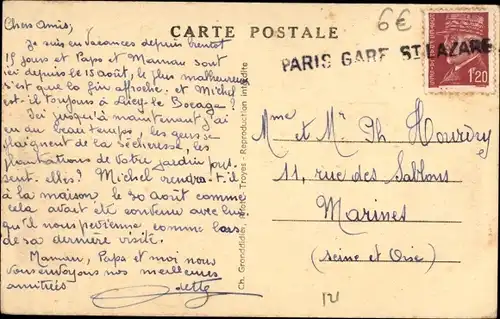 CARTE POSTALE
6€
PARIS GARE ST LAZARE
1f20
Chers Amis,
Je suis en vacances depuis bientôt
15 jours et Papa et Maman sont
ici depuis le 15 août, le plus malheureux
c'est que la fin approche. et Michel
est-il toujours à Licy le Bocage?
Ici jusqu'à maintenant j'ai
eu du beau temps, les gens se
plaignent de la sécheresse, les
plantations de votre jardin pous-
sent-elles? Michel rendra-t'il
à la maison, le 30 août comme
cela avait été convenu avec lui
qu'il nous prévienne comme lors
de sa dernière visite.
Maman, Papa et moi nous
vous envoyons nos meilleures
amitiés Odette
Ch. Granddidier, Photo, Troyes - Reproduction Interdite
Mme et Mr Ph Hourdry
11, rue des Sablons
Marines
(Seine et Oise)
121